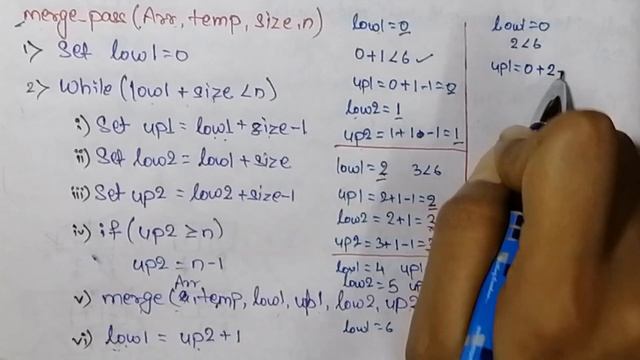 merge-pass(Arr, temp, size, n)
1> Set low1=0
2> While(low1 + size < n)
i) Set up1 = low1 + size-1
ii) Set low2 = low1 + size
iii) Set up2 = low2 + size-1
iv) if (up2 ≥ n)
up2 = n-1
Arr
v) merge( temp, low1, up1, low2, up2
vi) low1 = up2+1
low1 = 0
0+1<6 ✓
up1 = 0+1-1=0
low2 = 1
up2 = 1+1-1=1
low1 = 2 3<6
up1 = 2+1-1=2
low2 = 2+1=3
up2 = 3+1-1=3
low1 = 4 up1
low2 = 5 up
low1 = 6
low1 = 0
2<6
up1 = 0+2-